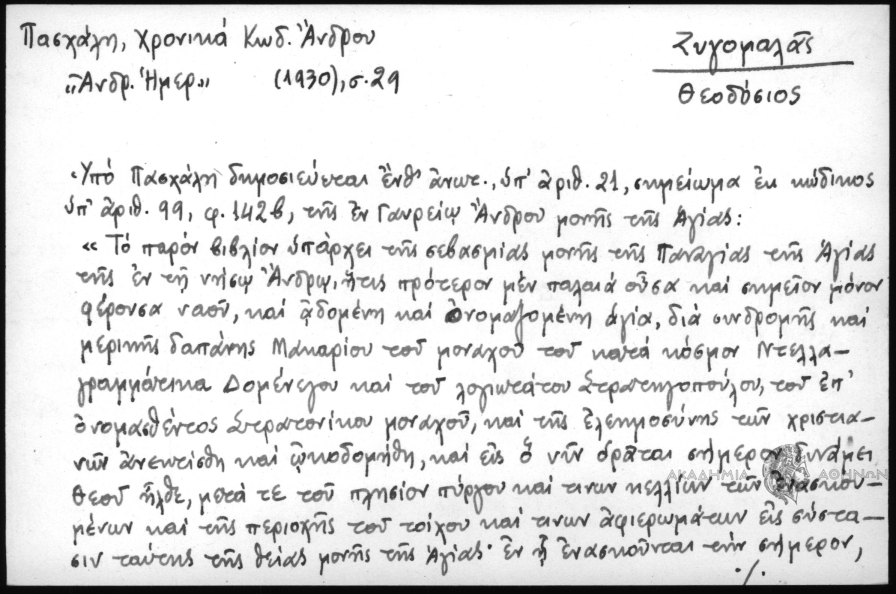 Πασχάλη, Χρονικά Κωδ. Ἄνδρου
"Ἀνδρ. Ἡμερ" (1930), σ. 29
Ζυγομαλᾶς
Θεοδόσιος
Ὑπό Πασχάλη δημοσιεύεται ἔνθ' ἄνωτ., ὑπ' ἀριθ. 21, σημείωμα ἐκ κώδικος
ὑπ' ἀριθ. 99, φ. 142β, τῆς ἐν Γαυρείῳ Ἄνδρου μονῆς τῆς Ἁγίας:
« Τό παρόν βιβλίον ὑπάρχει τῆς σεβασμίας μονῆς τῆς Παναγίας τῆς Ἁγίας
τῆς ἐν τῇ νήσῳ Ἄνδρῳ, ἥτις πρότερον μέν παλαιά οὖσα καί σημεῖον μόνον
φέρουσα ναοῦ, καί ᾀδομένη καί ὀνομαζομένη ἁγία, διά συνδρομῆς καί
μερικῆς δαπάνης Μακαρίου τοῦ μοναχοῦ τοῦ κατά κόσμον Ντελλα-
γραμμάτικα Δομένεγου καί τοῦ λογιωτάτου Στρατηγοπούλου, τοῦ ἐπ'
ὀνομασθέντος Στρατονίκου μοναχοῦ, καί τῆς ἐλεημοσύνης τῶν χριστια-
νῶν ἀνεκτίσθη καί ᾠκοδομήθη, καί εἰς ὅ νῦν ὁρᾶται σήμερον δυνάμει
Θεοῦ ἦλθε, μετά τε τοῦ πλησίον πύργου καί τινων κελλίων τῶν ἐνασκου-
μένων καί τῆς περιοχῆς τοῦ τοίχου καί τινων ἀφιερωμάτων εἰς σύστα-
σιν ταύτης τῆς θείας μονῆς τῆς Ἁγίας· ἐν ᾗ ἐνασκοῦνται τήν σήμερον,
./.
ΑΚΑΔΗΜΙΑ ΑΘΗΝΩΝ